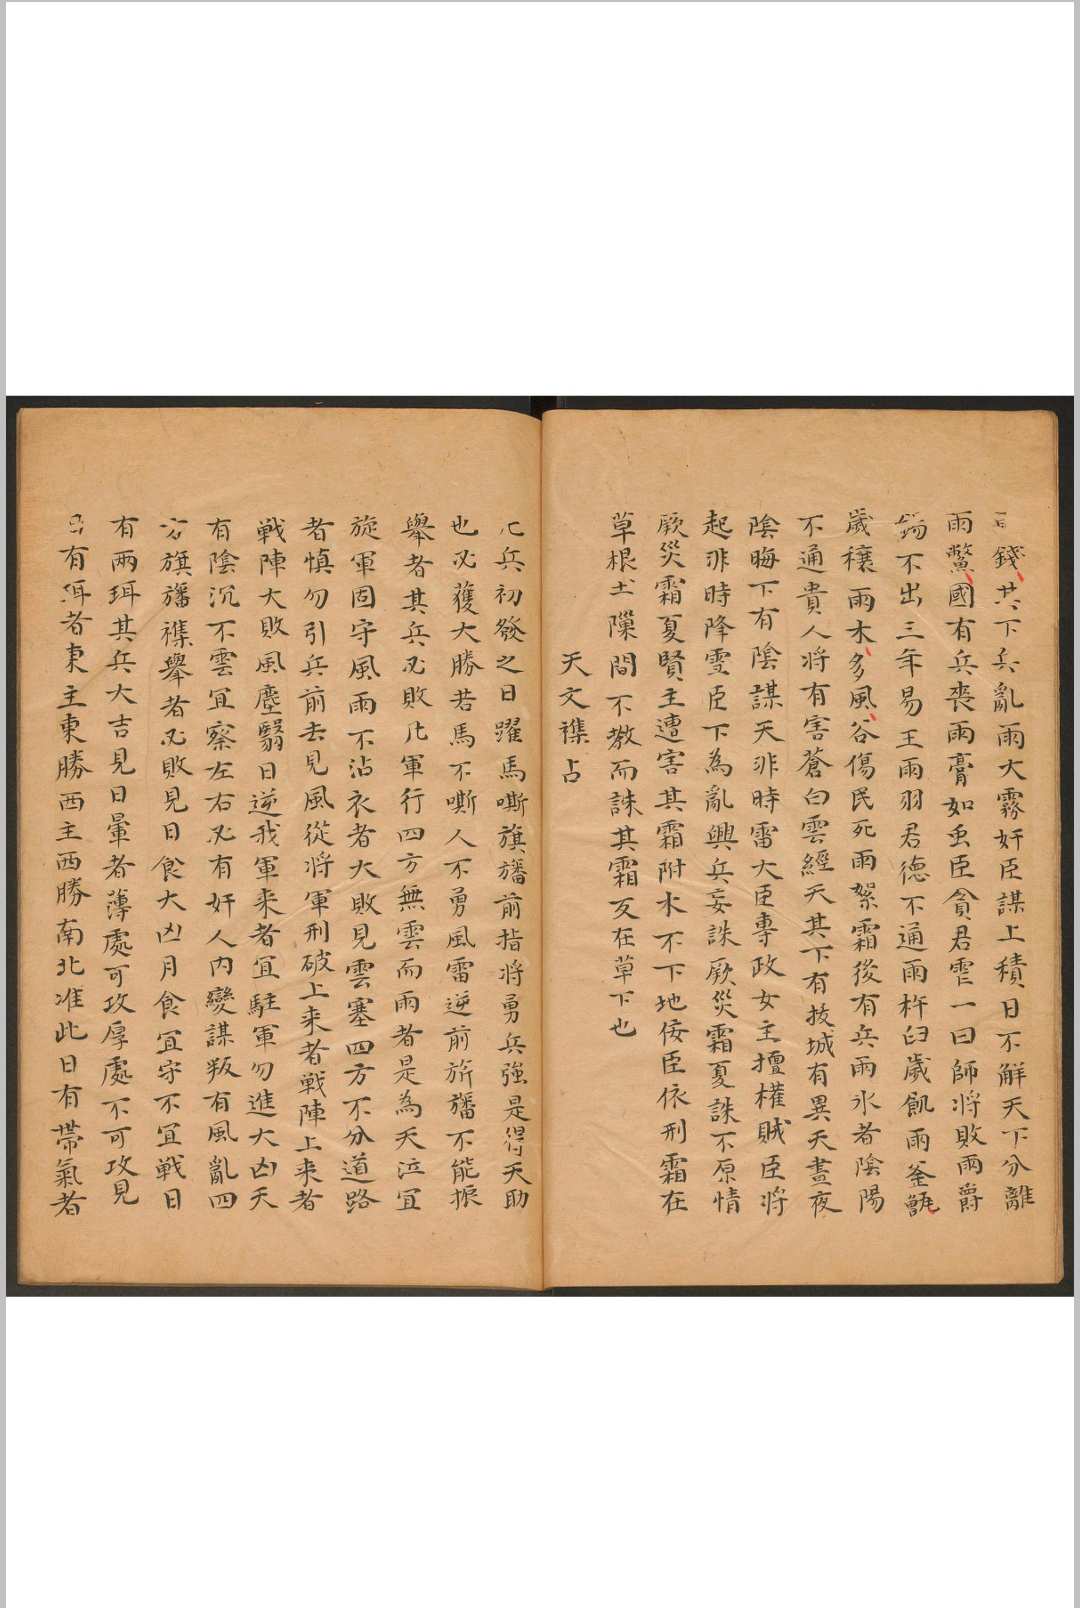 錢其下兵亂雨大霧奸臣謀上積日不解天下分離
雨鱉國有兵喪雨膏如虫臣貪君雩一曰師將敗雨爵
錫不出三年易王雨羽君德不通雨杵臼歲飢雨釜甑
歲穰雨木多風谷傷民死雨絮霜後有兵雨氷者陰陽
不通貴人将有害蒼白雲經天其下有拔城有異天晝夜
陰晦下有陰謀天非時雷大臣專政女主擅權賊臣将
起非時降雪臣下為亂興兵妄誅厥災霜夏誅不原情
厥災霜夏賢主遭害其霜附木不下地佞臣依刑霜在
草根土隟間不教而誅其霜反在草下也
天文襍占
凡兵初發之日躍馬嘶旗旛前指将勇兵強是得天助
也必獲大勝若馬不嘶人不勇風雷逆前旂旛不能振
舉者其兵必敗凡軍行四方無雲而雨者是為天泣宜
旋軍固守風雨不沾衣者大敗見雲塞四方不分道路
者慎勿引兵前去見風從将軍刑破上来者戦陣上来者
戦陣大敗風塵翳日逆我軍来者宜駐軍勿進大凶天
有陰沉不雲宜察左右必有奸人内變謀叛有風亂四
方旗旛襍舉者必敗見日食大凶月食宜守不宜戦日
有兩珥其兵大吉見日暈者薄處可攻厚處不可攻見
日有珥者東主東勝西主西勝南北准此日有帶氣者